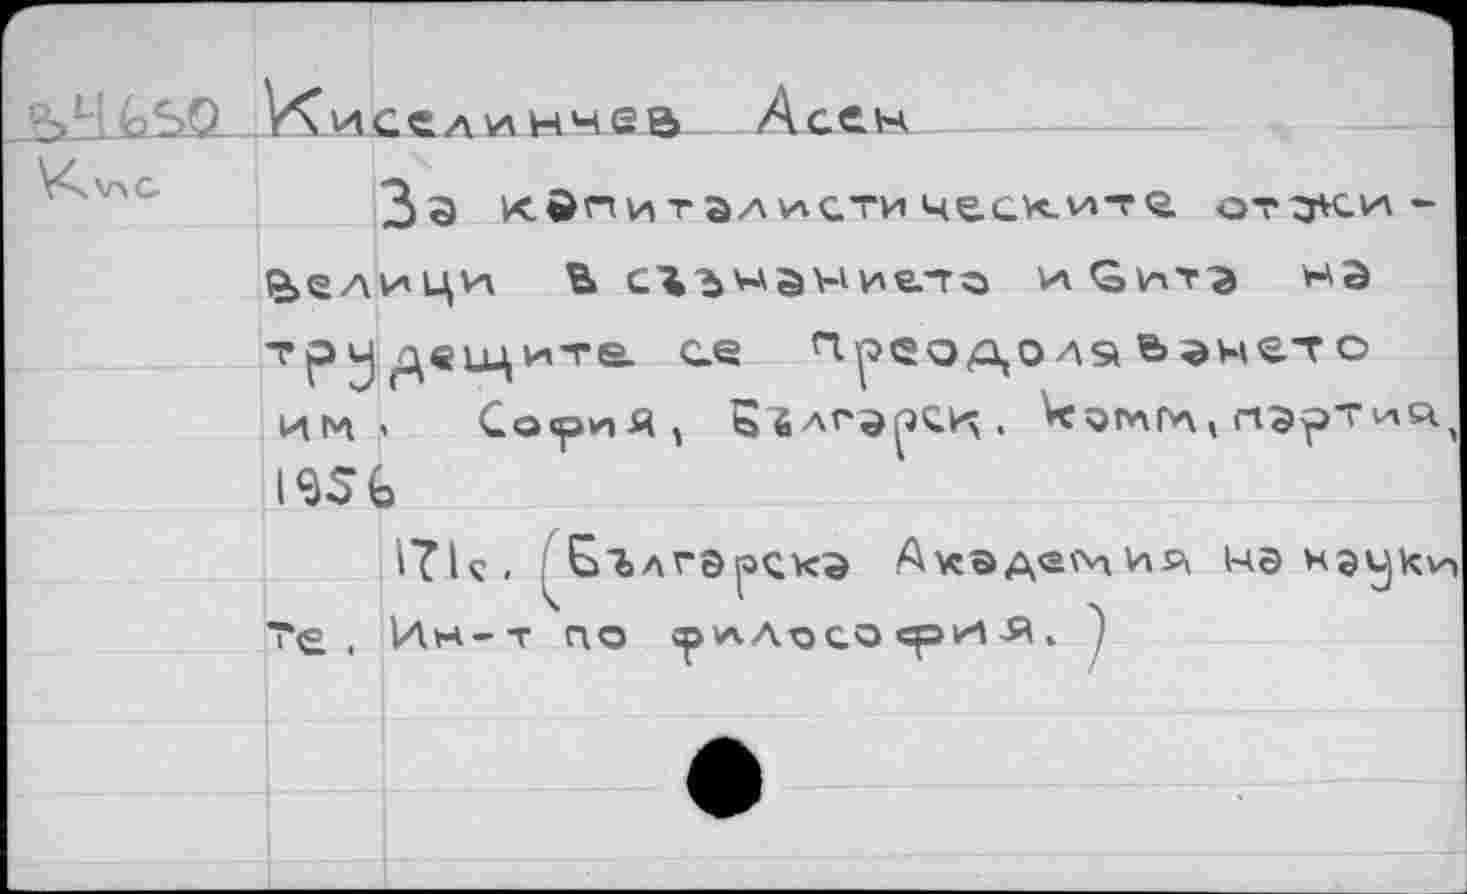 В41650 Киселинчев Асен
Кис
За капиталистическите отжи-
велици в съзнанието и бита на
трудещите се преодоляването
им. София, Българск. комм. партия,
1956
171с. (Българска Академия на науки
те. Ин-т по философия.)